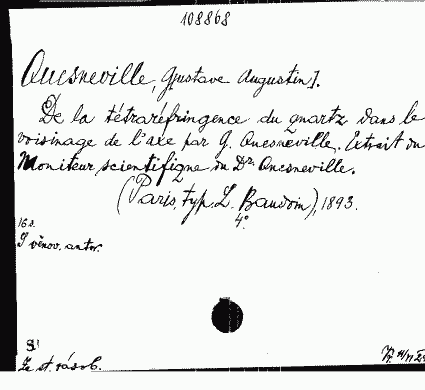 108868
Quesneville, G[ustave Augustin].
De la tétraréfringence du quartz dans le
voisinage de l'axe par G. Quesneville. Extrait du
Moniteur scientifique du Dr. Quesneville.
(Paris, typ. L. Baudoin), 1893.
16 s. 4°.
S věnov. autor.
Za st. násob.